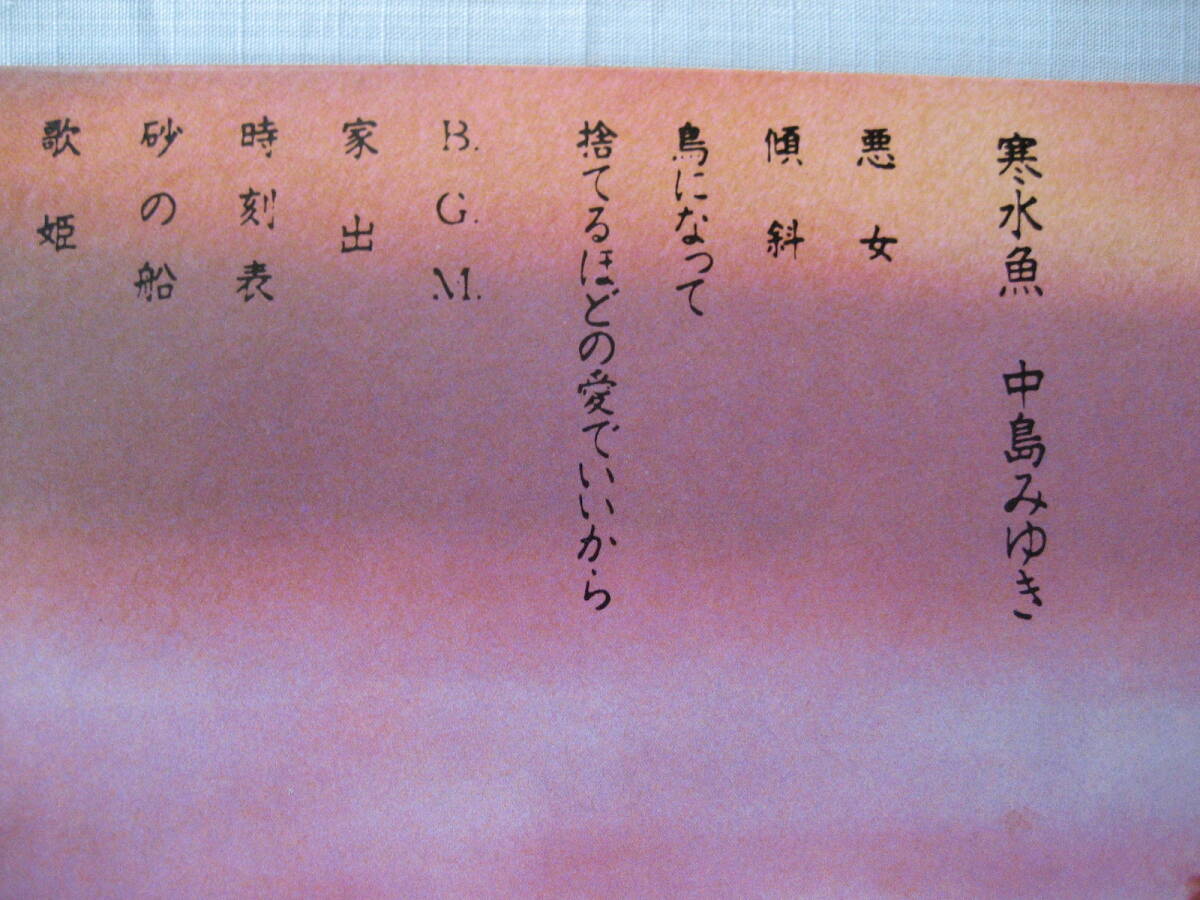 寒水魚　中島みゆき
悪女
傾斜
鳥になって
捨てるほどの愛でいいから
B.G.M.
家出
時刻表
砂の船
歌姫